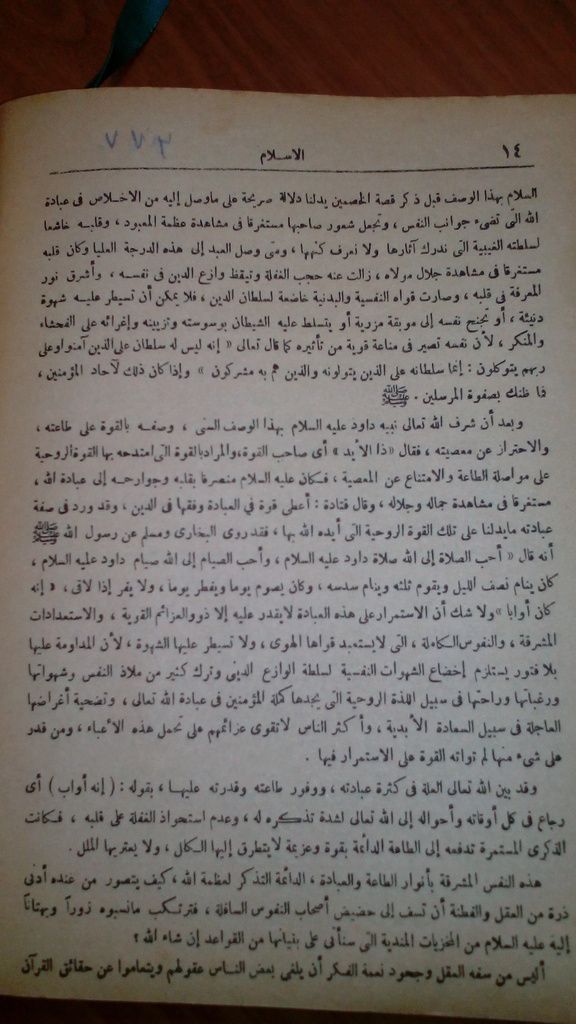 ١٤
الاسلام
٧٧٣
السلام بهذا الوصف قبل ذكر قصة الخصمين يدلنا دلالة صريحة على ماوصل إليه من الاخلاص فى عبادة
الله التى تضىء جوانب النفس ، وتجعل شعور صاحبها مستغرقا فى مشاهدة عظمة المعبود ، وقلبه خاشعا
لسلطته الغيبية التى ندرك آثارها ولا نعرف كنهها ، ومتى وصل العبد إلى هذه الدرجة العليا وكان قلبه
مستغرقا فى مشاهدة جلال مولاه ، زالت عنه حجب الغفلة وتيقظ وازع الدين فى نفسه ، وأشرق نور
المعرفة فى قلبه ، وصارت قواه النفسية والبدنية خاضعة لسلطان الدين ، فلا يمكن أن تسيطر عليه شهوة
دنيئة ، أو تجنح نفسه إلى موبقة مزرية أو يتسلط عليه الشيطان بوسوسته وتزيينه وإغرائه على الفحشاء
والمنكر ، لأن نفسه تصير فى مناعة قوية من تأثيره كما قال تعالى « إنه ليس له سلطان على الذين آمنوا وعلى
ربهم يتوكلون : إنما سلطانه على الذين يتولونه والذين هم به مشركون » وإذا كان ذلك لآحاد المؤمنين ،
فما ظنك بصفوة المرسلين . ﷺ
وبعد أن شرف الله تعالى نبيه داود عليه السلام بهذا الوصف السنى ، وصفه بالقوة على طاعته ،
والاحتراز عن معصيته ، فقال «ذا الأيد » أى صاحب القوة،والمراد بالقوة التى امتدحه بها القوة الروحية
على مواصلة الطاعة والامتناع عن المعصية ، فكان عليه السلام منصرفا بقلبه وجوارحه إلى عبادة الله ،
مستغرقا فى مشاهدة جماله وجلاله ، وقال قتادة : أعطى قوة فى العبادة وفقها فى الدين ، وقد ورد فى صفة
عبادته مايدلنا على تلك القوة الروحية التى أيده الله بها ، فقد روى البخارى ومسلم عن رسول الله ﷺ
أنه قال « أحب الصلاة إلى الله صلاة داود عليه السلام ، وأحب الصيام إلى الله صيام داود عليه السلام ،
كان ينام نصف الليل ويقوم ثلثه وينام سدسه ، وكان يصوم يوما ويفطر يوما ، ولا يفر إذا لاقى ، « إنه
كان أوابا » ولا شك أن الاستمرار على هذه العبادة لايقدر عليه إلا ذوو العزائم القوية ، والاستعدادات
المشرقة ، والنفوس الكاملة ، التى لايستعبد قواها الهوى ، ولا تسيطر عليها الشهوة ، لأن المداومة عليها
بلا فتور يستلزم إخضاع الشهوات النفسية لسلطة الوازع الدينى وترك كثير من ملاذ النفس وشهواتها
ورغباتها وراحتها فى سبيل اللذة الروحية التى يجدها كملة المؤمنين فى عبادة الله تعالى ، وتضحية أغراضها
العاجلة فى سبيل السعادة الأبدية ، وأكثر الناس لاتقوى عزائمهم على تحمل هذه الأعباء ، ومن قدر
على شىء منها لم تواته القوة على الاستمرار فيها .
وقد بين الله تعالى العلة فى كثرة عبادته ، ووفور طاعته وقدرته عليها ، بقوله : ( إنه أواب ) أى
رجاع فى كل أوقاته وأحواله إلى الله تعالى لشدة تذكره له ، وعدم استحواذ الغفلة على قلبه ، فكانت
الذكرى المستمرة تدفعه إلى الطاعة الدائمة بقوة وعزيمة لايتطرق إليها الكلال ، ولا يعتريها الملل .
هذه النفس المشرقة بأنوار الطاعة والعبادة ، الدائمة التذكر لعظمة الله ، كيف يتصور من عنده أدنى
ذرة من العقل والفطنة أن تسف إلى حضيض أصحاب النفوس السافلة ، فترتكب مانسبوه زوراً وبهتاناً
إليه عليه السلام من المخزيات المندية التى سنأتى على بنيانها من القواعد إن شاء الله ؟
أليس من سفه العقل وجحود نعمة الفكر أن يلغى بعض الناس عقولهم ويتعاموا عن حقائق القرآن